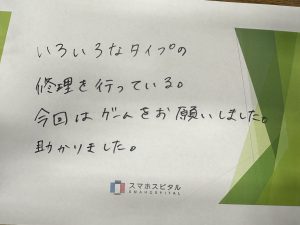 いろいろなタイプの
修理を行っている。
今回はゲームをお願いしました。
助かりました。
スマホスピタル
SMAHOSPITAL